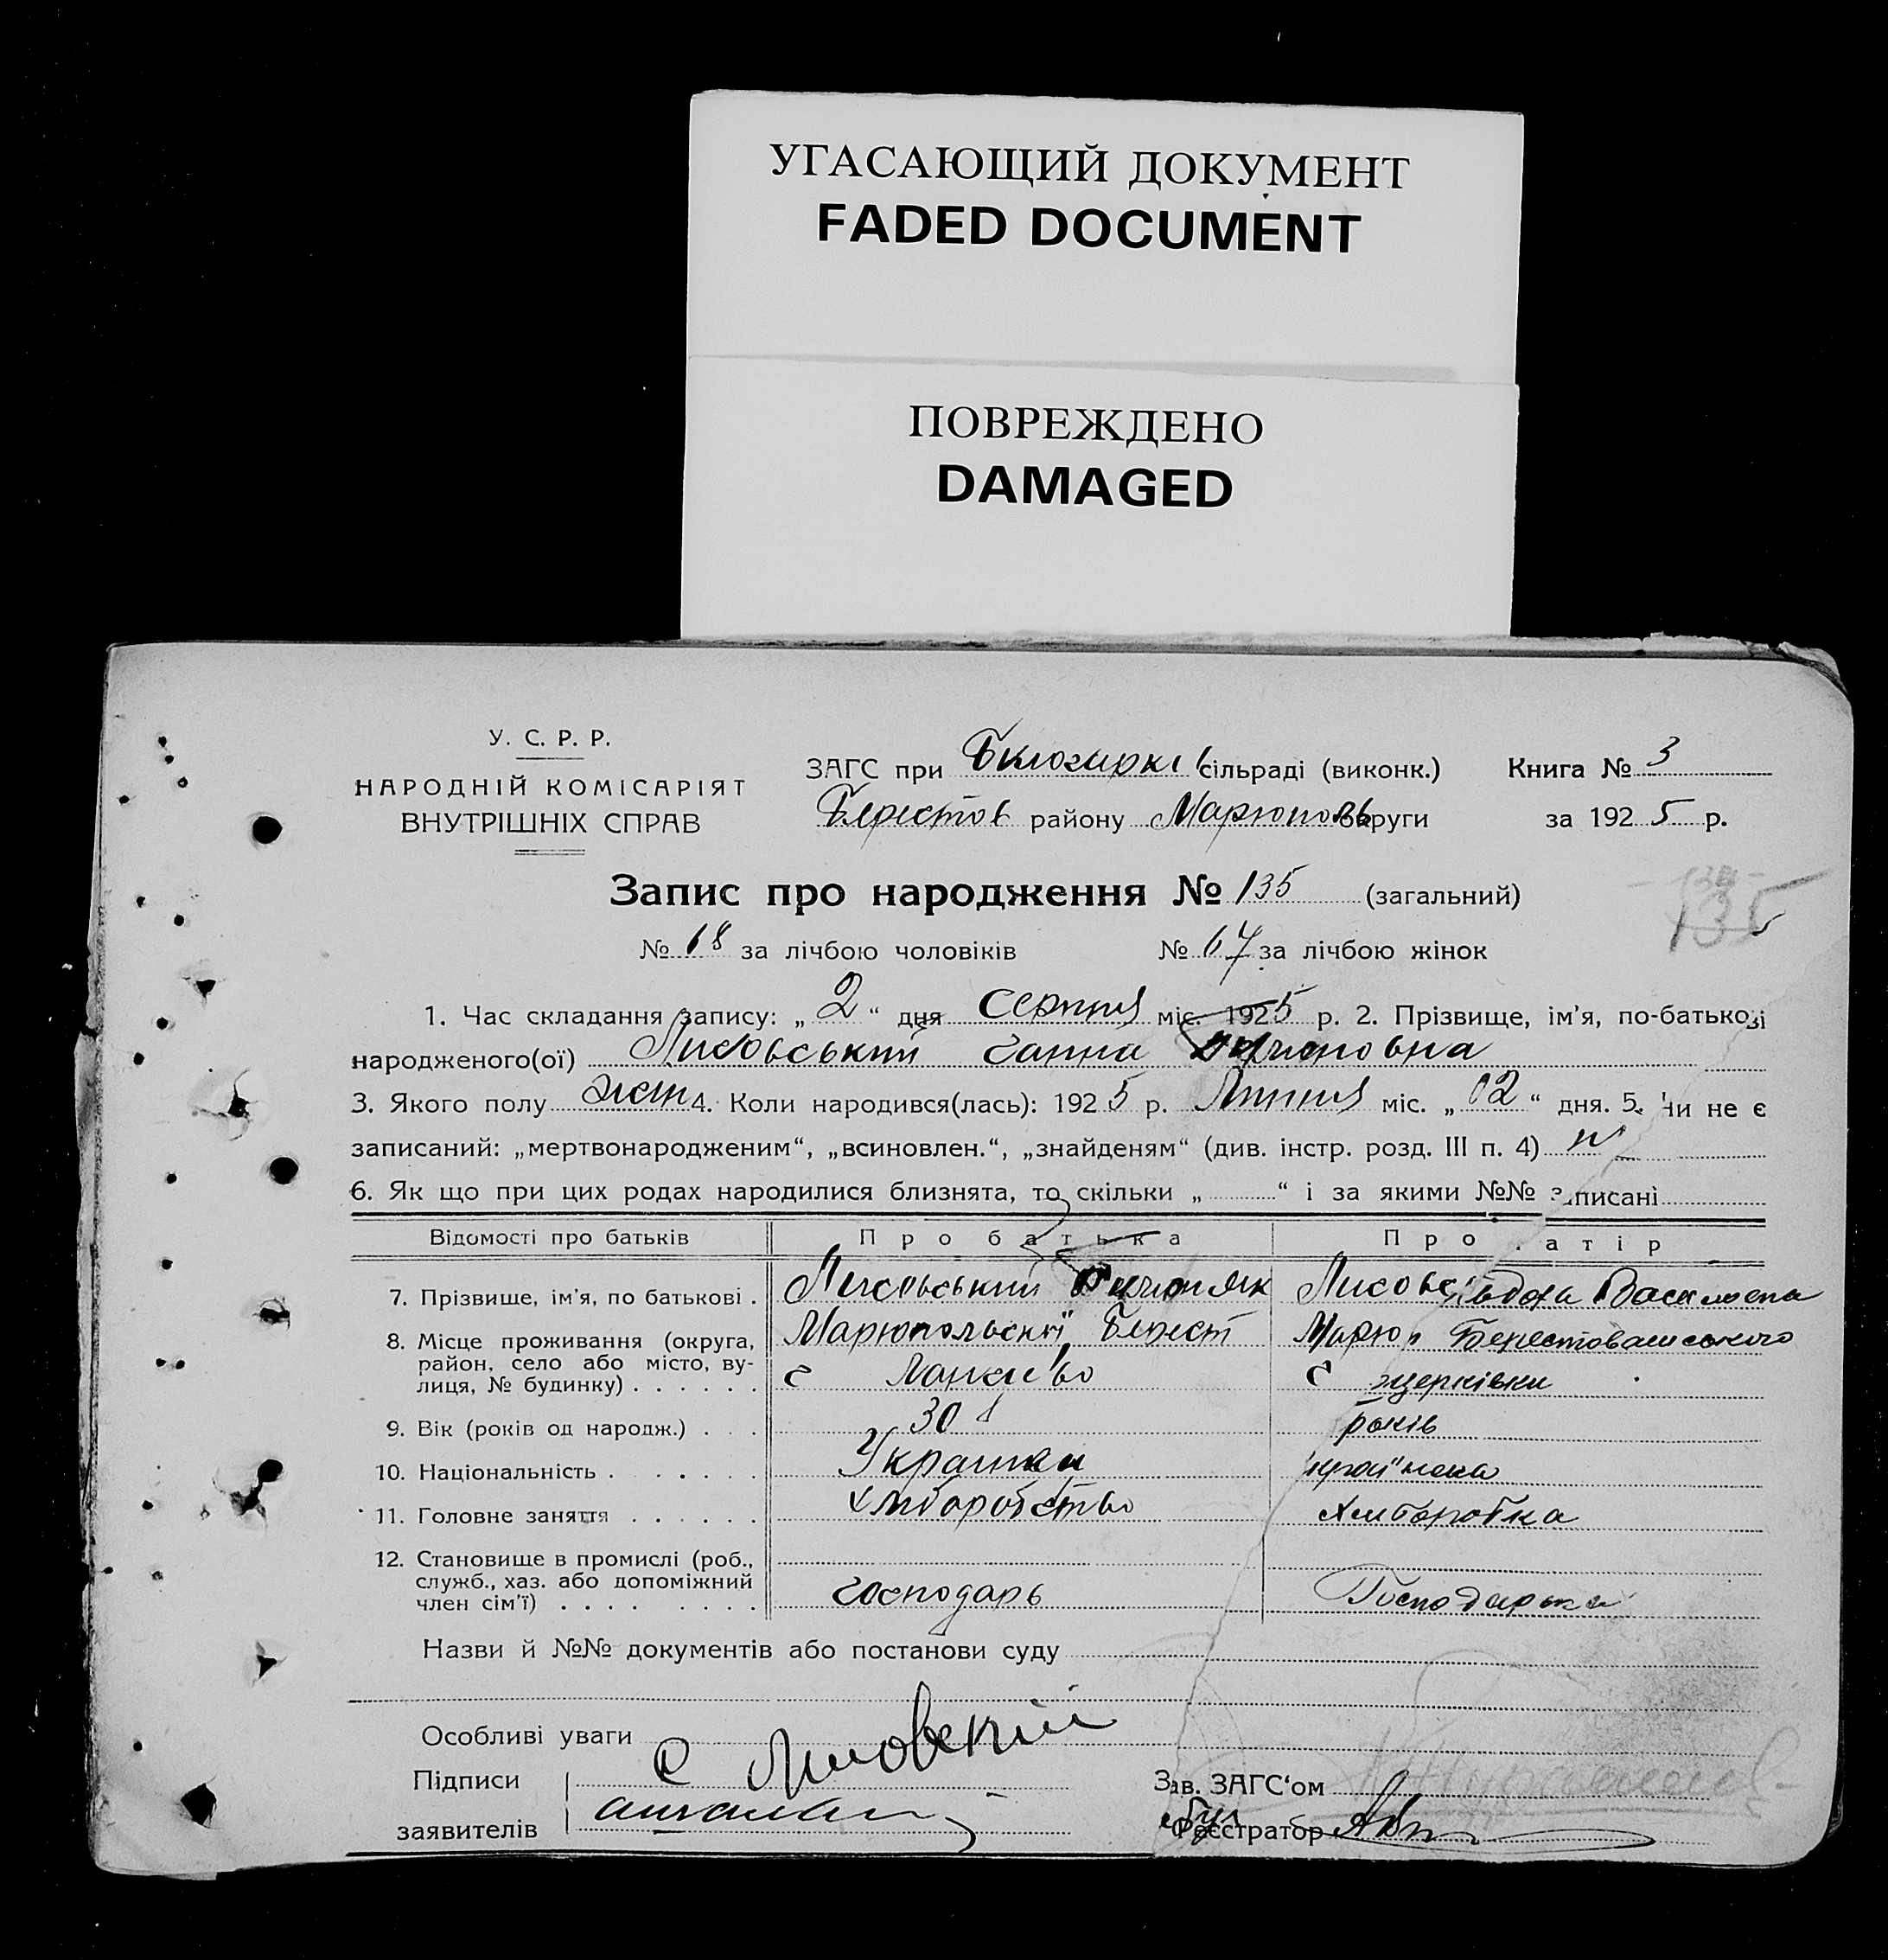 УГАСАЮЩИЙ ДОКУМЕНТ
FADED DOCUMENT
ПОВРЕЖДЕНО
DAMAGED
У. С. Р. Р.
НАРОДНІЙ КОМІСАРІЯТ
ВНУТРІШНІХ СПРАВ
ЗАГС при сільраді (виконк.) Книга № 3
Берестов району Маріюполь округи за 1925 р.
Запис про народження № 135 (загальний)
135
№ 68 за лічбою чоловіків № 67 за лічбою жінок
1. Час складання запису: „ 2 “ дня Серпня міс. 1925 р. 2. Прізвище, ім'я, по-батькові
народженого(ої) Лисовський Ганна
3. Якого полу жін 4. Коли народився(лась): 1925 р. Липня міс. „ 02 “ дня. 5. Чи не є
записаний: „мертвонародженим“, „всиновлен.“, „знайденям“ (див. інстр. розд. III п. 4) ні
6. Як що при цих родах народилися близнята, то скільки „ “ і за якими №№ записані
Відомості про батьків Про батька Про матір
7. Прізвище, ім'я, по батькові . Лисовський Лисовс Василевна
8. Місце проживання (округа, Маріюпольскій, Берест Марю Берестоваського
район, село або місто, ву-
лиця, № будинку) . . . . . . с с
9. Вік (років од народж.) . . . 30 років
10. Національність . . . . . . Українец україінка
11. Головне заняття . . . . . . хліборобство хліборобка
12. Становище в промислі (роб.,
служб., хаз. або допоміжний
член сім'ї) . . . . . . . . господарь Господарька
Назви й №№ документів або постанови суду
Особливі уваги
Підписи
заявителів
Зав. ЗАГС'ом
Реєстратор